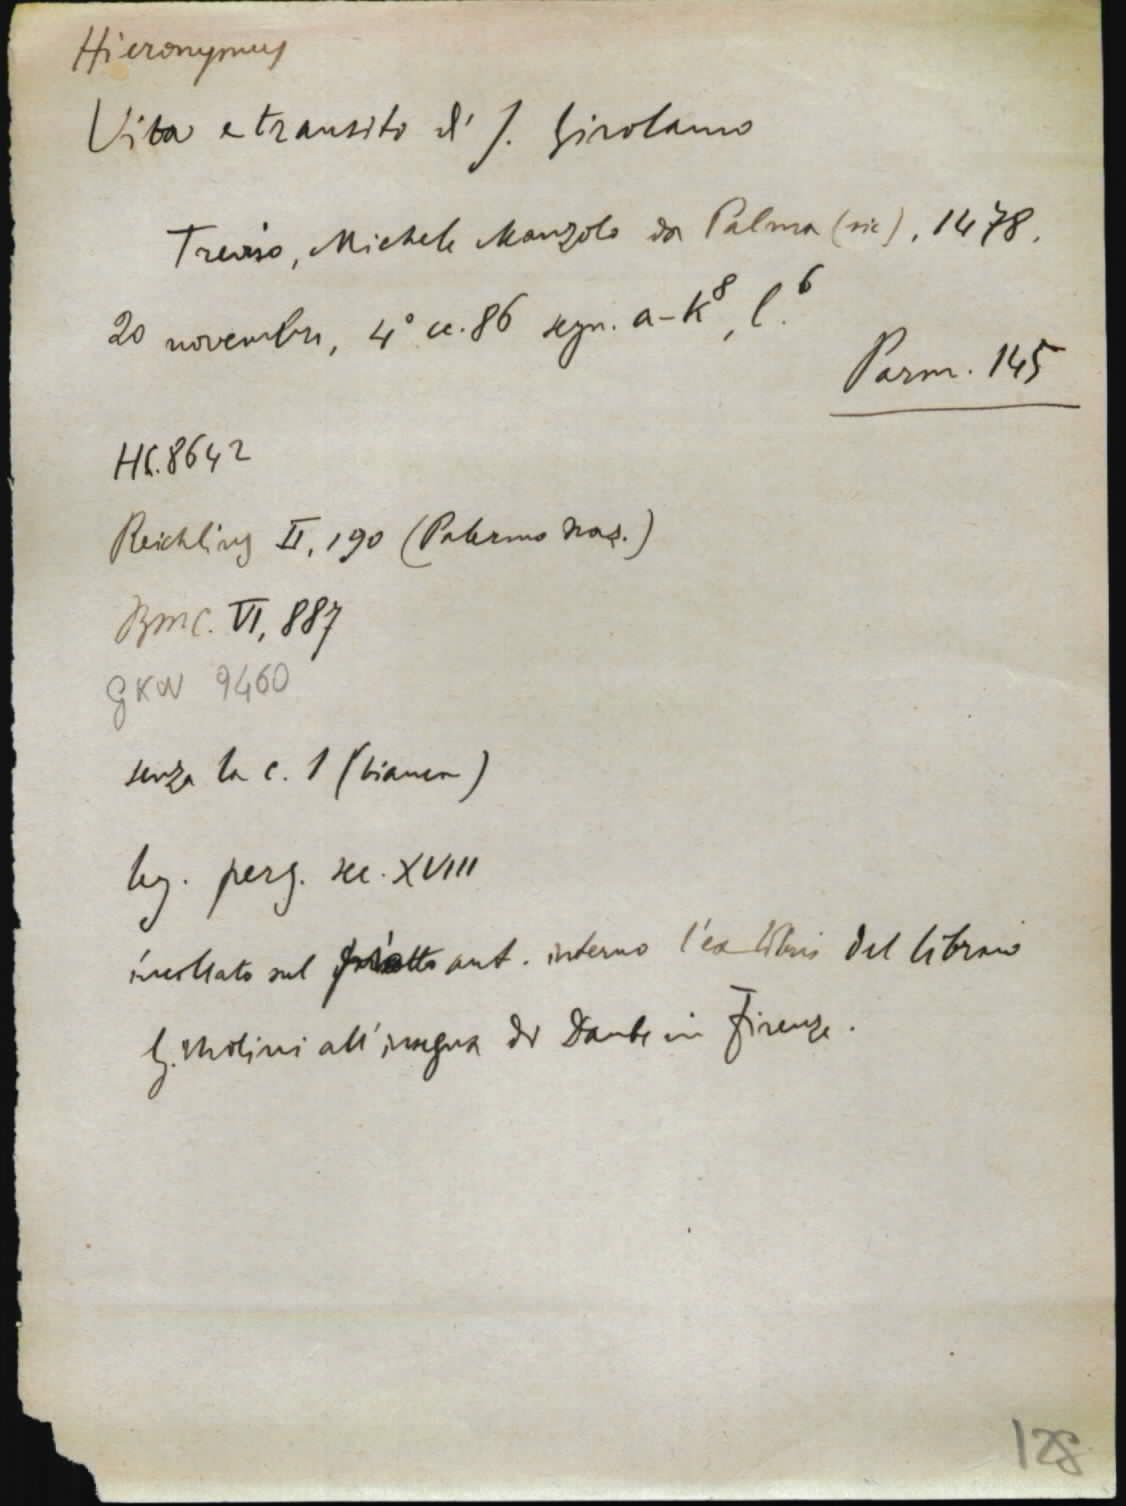 Hieronymus
Vita e transito di S. Girolamo
Treviso, Michele Manzolo da Palma (sic), 1478.
20 novembre, 4° cc. 86 segn. a-k⁸, l.⁶
Parm. 145
HC. 8642
Reichling II, 190 (Palermo Naz.)
BMC. VI, 887
GKW 9460
senza la c. 1 (bianca)
leg. perg. sec. XVIII
incollato sul ant. interno l'ex libris del libraio
G. Molini all'insegna di Dante in Firenze.
128